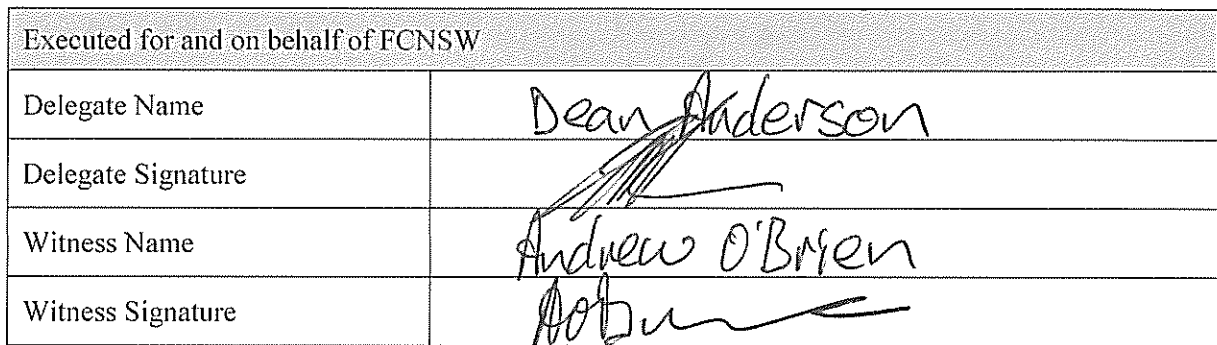 Executed for and on behalf of FCNSW
Delegate Name Dean Anderson
Delegate Signature
Witness Name Andrew O'Brien
Witness Signature